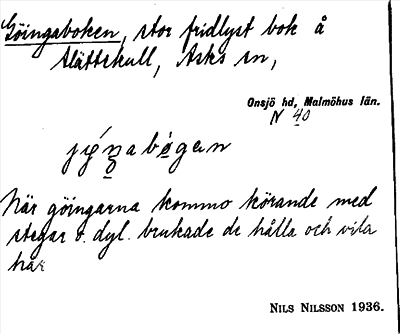 Göingaboken, stor fridlyst bok å
Slättskull, Asks sn,
Onsjö hd, Malmöhus län.
N 40
När göingarna kommo körande med
stegar o. dyl. brukade de hålla och vila
här
NILS NILSSON 1936.